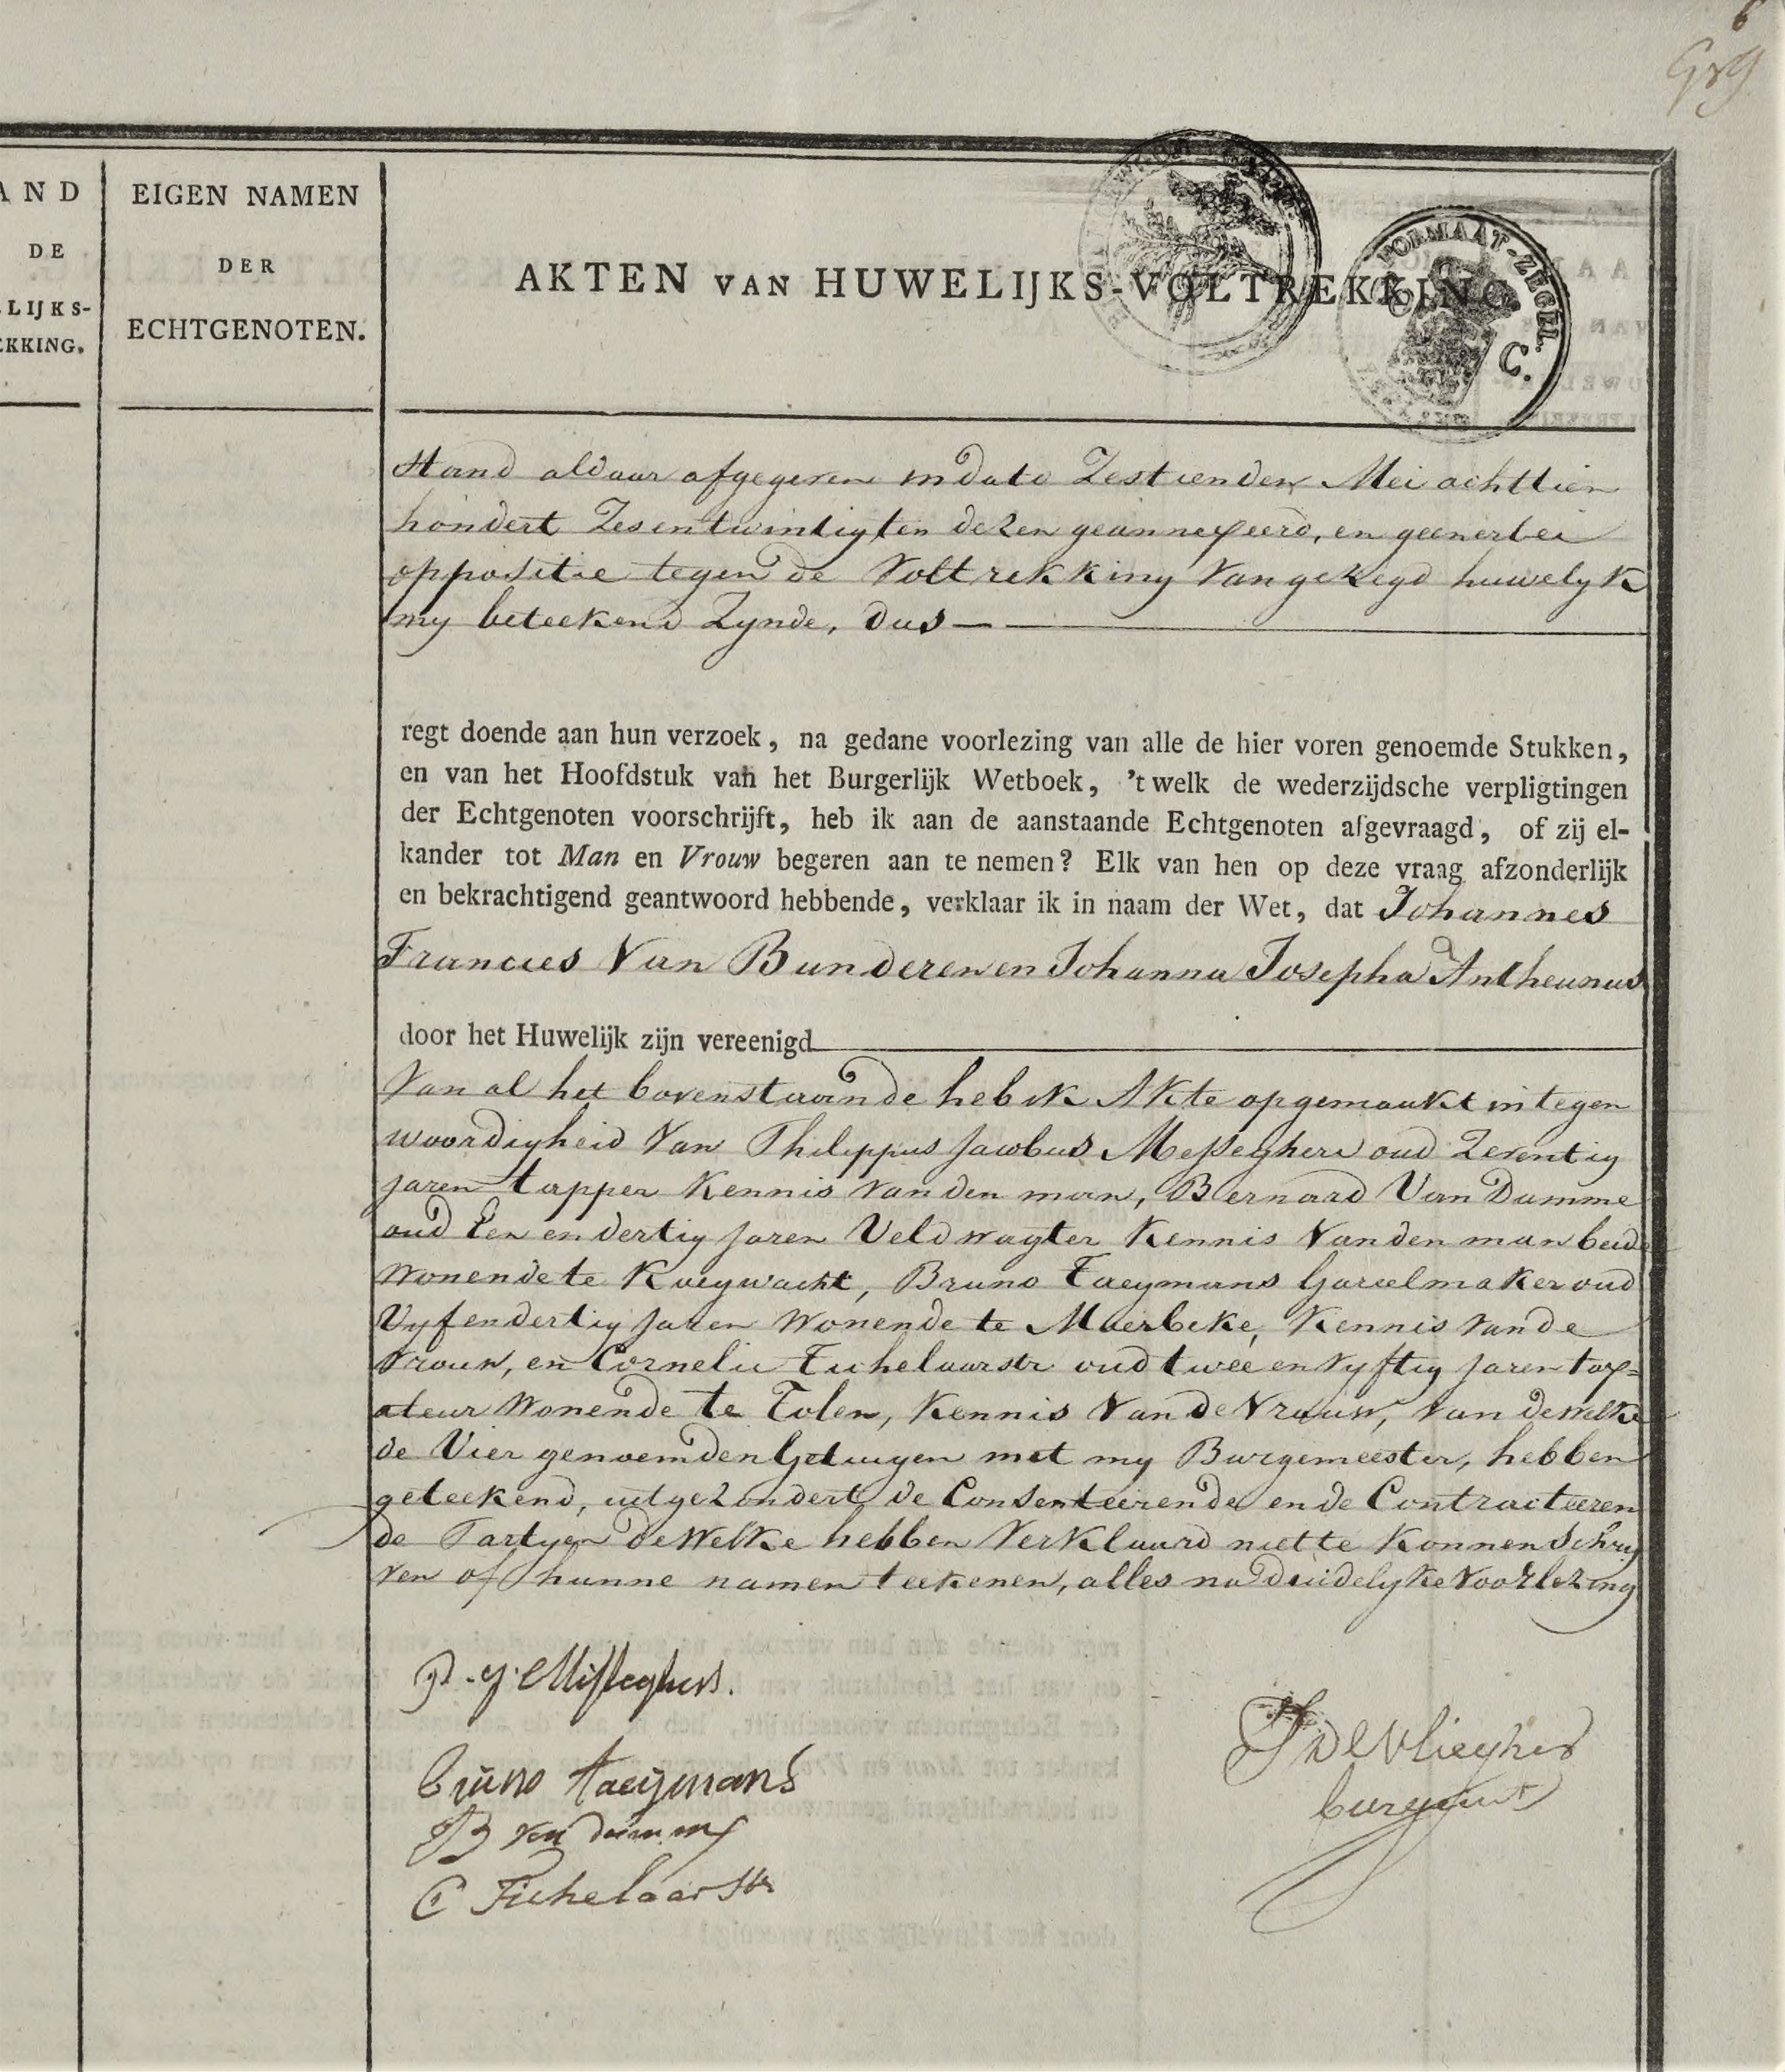 6
AND
DE
LIJKS-
EKKING.
EIGEN NAMEN
DER
ECHTGENOTEN.
AKTEN VAN HUWELIJKS-VOLTREKKING
FORMAAT-ZEGEL.
C.
Stand aldaar afgegeven in dato Zestienden Mei achttien
hondert Zesentwintig ten dezen geannexeerd, en geenerlei
oppositie tegen de Voltrekking Van gezegd huwelyk
my beteekend Zynde, dus
regt doende aan hun verzoek, na gedane voorlezing van alle de hier voren genoemde Stukken,
en van het Hoofdstuk van het Burgerlijk Wetboek, 't welk de wederzijdsche verpligtingen
der Echtgenoten voorschrijft, heb ik aan de aanstaande Echtgenoten afgevraagd, of zij el-
kander tot Man en Vrouw begeren aan te nemen? Elk van hen op deze vraag afzonderlijk
en bekrachtigend geantwoord hebbende, verklaar ik in naam der Wet, dat Johannes
Francies Van Bunderen en Johanna Josepha Antheunus
door het Huwelijk zijn vereenigd
Van al het bovenstaande heb ik Akte opgemaakt in tegen
woordigheid Van Philippus Jacobus Messeghers oud Zeventig
jaren tapper Kennis Van den man, Bernaard Van Damme
oud Een en dertig jaren Veldwagter Kennis Van den man beide
Wonende te Koeywacht, Bruno Taeymans Gareelmaker oud
Vyfendertig jaren Wonende te Moerbeke, Kennis Van de
Vrouw, en Cornelis Tichelaarstr oud twee en Vyftig jaren tax=
ateur Wonende te Tolen, Kennis Van de Vrouw, Van dewelke
de Vier genoemden Getuygen met my Burgemeester, hebben
geteekend, uitgezondert de Consenteerende en de Contracteeren
de Partyen deWelke hebben Verklaard niet te Konnen Schry
ven of hunne namen teekenen, alles na duidelyke Voorlezing
P. J. Messeghers.
Bruno taeymans
B van damme
C Tichelaar str
J De Vliegher